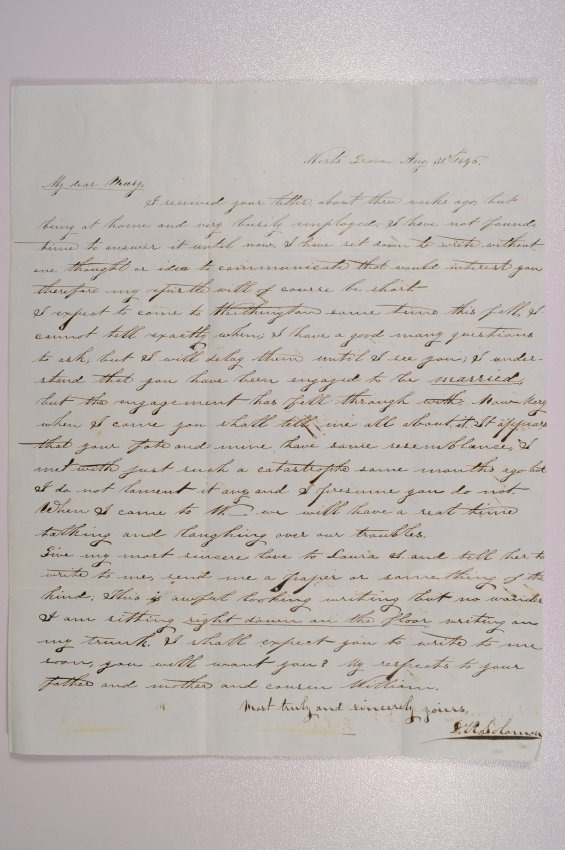 Grove Aug 31st
My dear Mary,
I received your letter, about three weeks ago, but
being at home and very busily employed; I have not found
time to answer it until now, I have set down to write without
one thought or idea to communicate that would interest you
therefore my epistle will of course be short.
I expect to come to Worthington some time this fall, I
cannot tell exactly when; I have a good many questions
to ask, but I will delay them until I see you; I under-
stand that you have been engaged to be married,
but the engagement has fell through with; Now Mary
when I come you shall tell me all about it. It appears
that your fate and mine have some resemblance, I
met with just such a catastrophe some months ago but
I do not lament it any and I presume you do not.
When I come to W— we will have a real time
talking and laughing over our troubles.
Give my most sincere love to Laura S. and tell her to
write to me, send me a paper or something of the
kind; This is awful looking writing but no wonder
I am sitting right down on the floor writing on
my trunk. I shall expect you to write to me
soon, you will wont you? My respects to your
father and mother and cousin William.
Most truly and sincerely yours,
Solomon